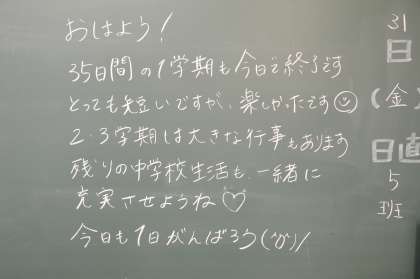 おはよう！
35日間の1学期も今日で終了です
とっても短いですが、楽しかったです☺
2・3学期は大きな行事もあります
残りの中学校生活も、一緒に
充実させようね♡
今日も1日がんばろう(^o^)/
31
日
(金)
日直
5
班